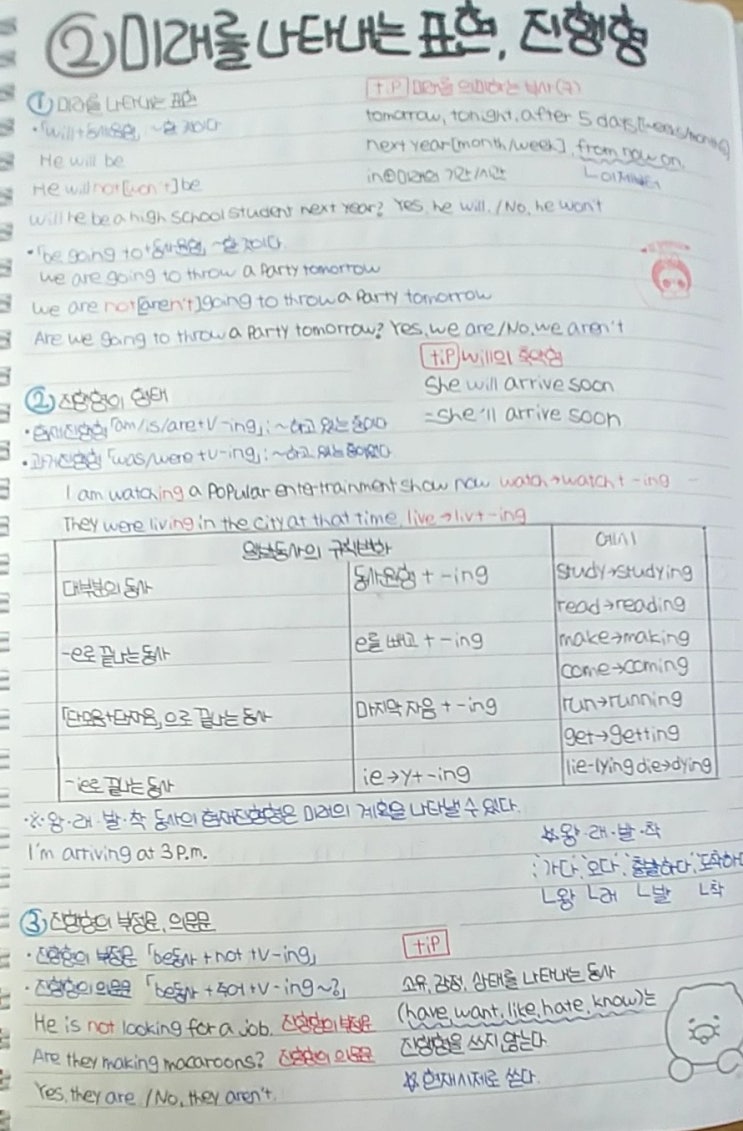 ②미래를 나타내는 표현, 진행형
①미래를 나타내는 표현
•「will+동사원형」 ~할 것이다
He will be
He will not[won't]be
Will he be a high school student next year? Yes, he will. / No, he won't
tip 미래를 의미하는 부사(구)
tomorrow, tonight, after 5 days
next year[month/week], from now on,
in⊕미래의 기간/시간
•「be going to+동사원형」 ~할 것이다
we are going to throw a party tomorrow
we are not[aren't]going to throw a party tomorrow
Are we going to throw a party tomorrow? Yes, we are/No, we aren't
tip will의 축약형
She will arrive soon
=she'll arrive soon
②진행형의 형태
•현재진행형「am/is/are+V-ing」: ~하고 있는 중이다
•과거진행형「was/were+V-ing」: ~하고 있는 중이었다
I am watching a popular entertrainment show now watch→watch+-ing
They were living in the city at that time. live→liv+-ing
일반동사의 규칙변화 예시
대부분의 동사 동사원형+-ing study→studying
read→reading
-e로 끝나는 동사 e를 빼고+-ing make→making
come→coming
「단모음+단자음」으로 끝나는 동사 마지막 자음+-ing run→running
get→getting
-ie로 끝나는 동사 ie→y+-ing lie-lying die→dying
•※왕·래·발·착 동사의 현재진행형은 미래의 계획을 나타낼 수 있다.
I'm arriving at 3P.m.
※왕·래·발·착
:가다, 오다, 출발하다, 도착하다
ㄴ왕 ㄴ래 ㄴ발 ㄴ착
③진행형의 부정문, 의문문
•진행형의 부정문「be동사+not+V-ing」
•진행형의 의문문「be동사+주어+V-ing~?」
He is not looking for a job. 진행형의 부정문
Are they making macaroons? 진행형의 의문문
Yes, they are / No, they aren't.
tip
소유, 감정, 상태를 나타내는 동사
(have, want, like, hate, know)는
진행형을 쓰지 않는다.
※현재시제로 쓴다.